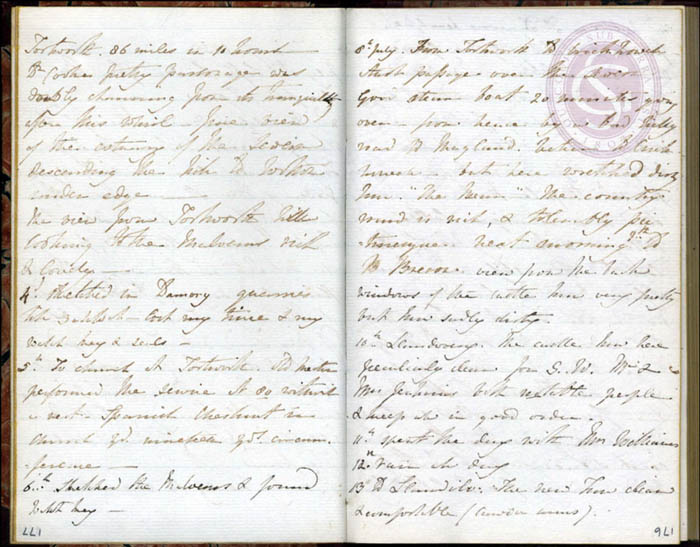 Tortworth. 86 miles in 10 hours
The pretty parsonage was
doubly charming from its tranquillity
after this whirl - fine view
of the estuary of the Severn
descending the hill to Wotton
under edge —
the view from Tortworth hill
looking to the Malverns rich
& lovely —
4th Sketched in Damory quarries
lost my time & my
5th To church at Tortworth. Old
performed the service at 80 without
a rest - Spanish Chestnut in
church yd. nineteen yds. circum
ference —
6th Sketched the Malverns & found
177
8th July. From Tortworth to
passage over the
Good steam boat 20 minutes going
over - from hence by a bad hilly
road to Ragland. better to
but here wretched dirty
Inn. "The country
round is rich, & tolerably pic
turesque. next morning 9th to
to Brecon. view from the back
windows of the castle Inn very pretty
but Inn sadly dirty.
10th Llandovery. The castle Inn here
peculiarly clean for S.W. Mr &
Mrs Jenkins both notable people
& keep it in good order.
11th spent the day with Mrs Williams
12th rain all day
13th to Llandilo. The new Inn clean
& comfortable (Cawdor arms).
176